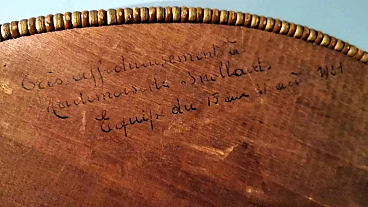 Très affectueusement à
Mademoiselle
L'Equipe du 15 au 31 août 1951